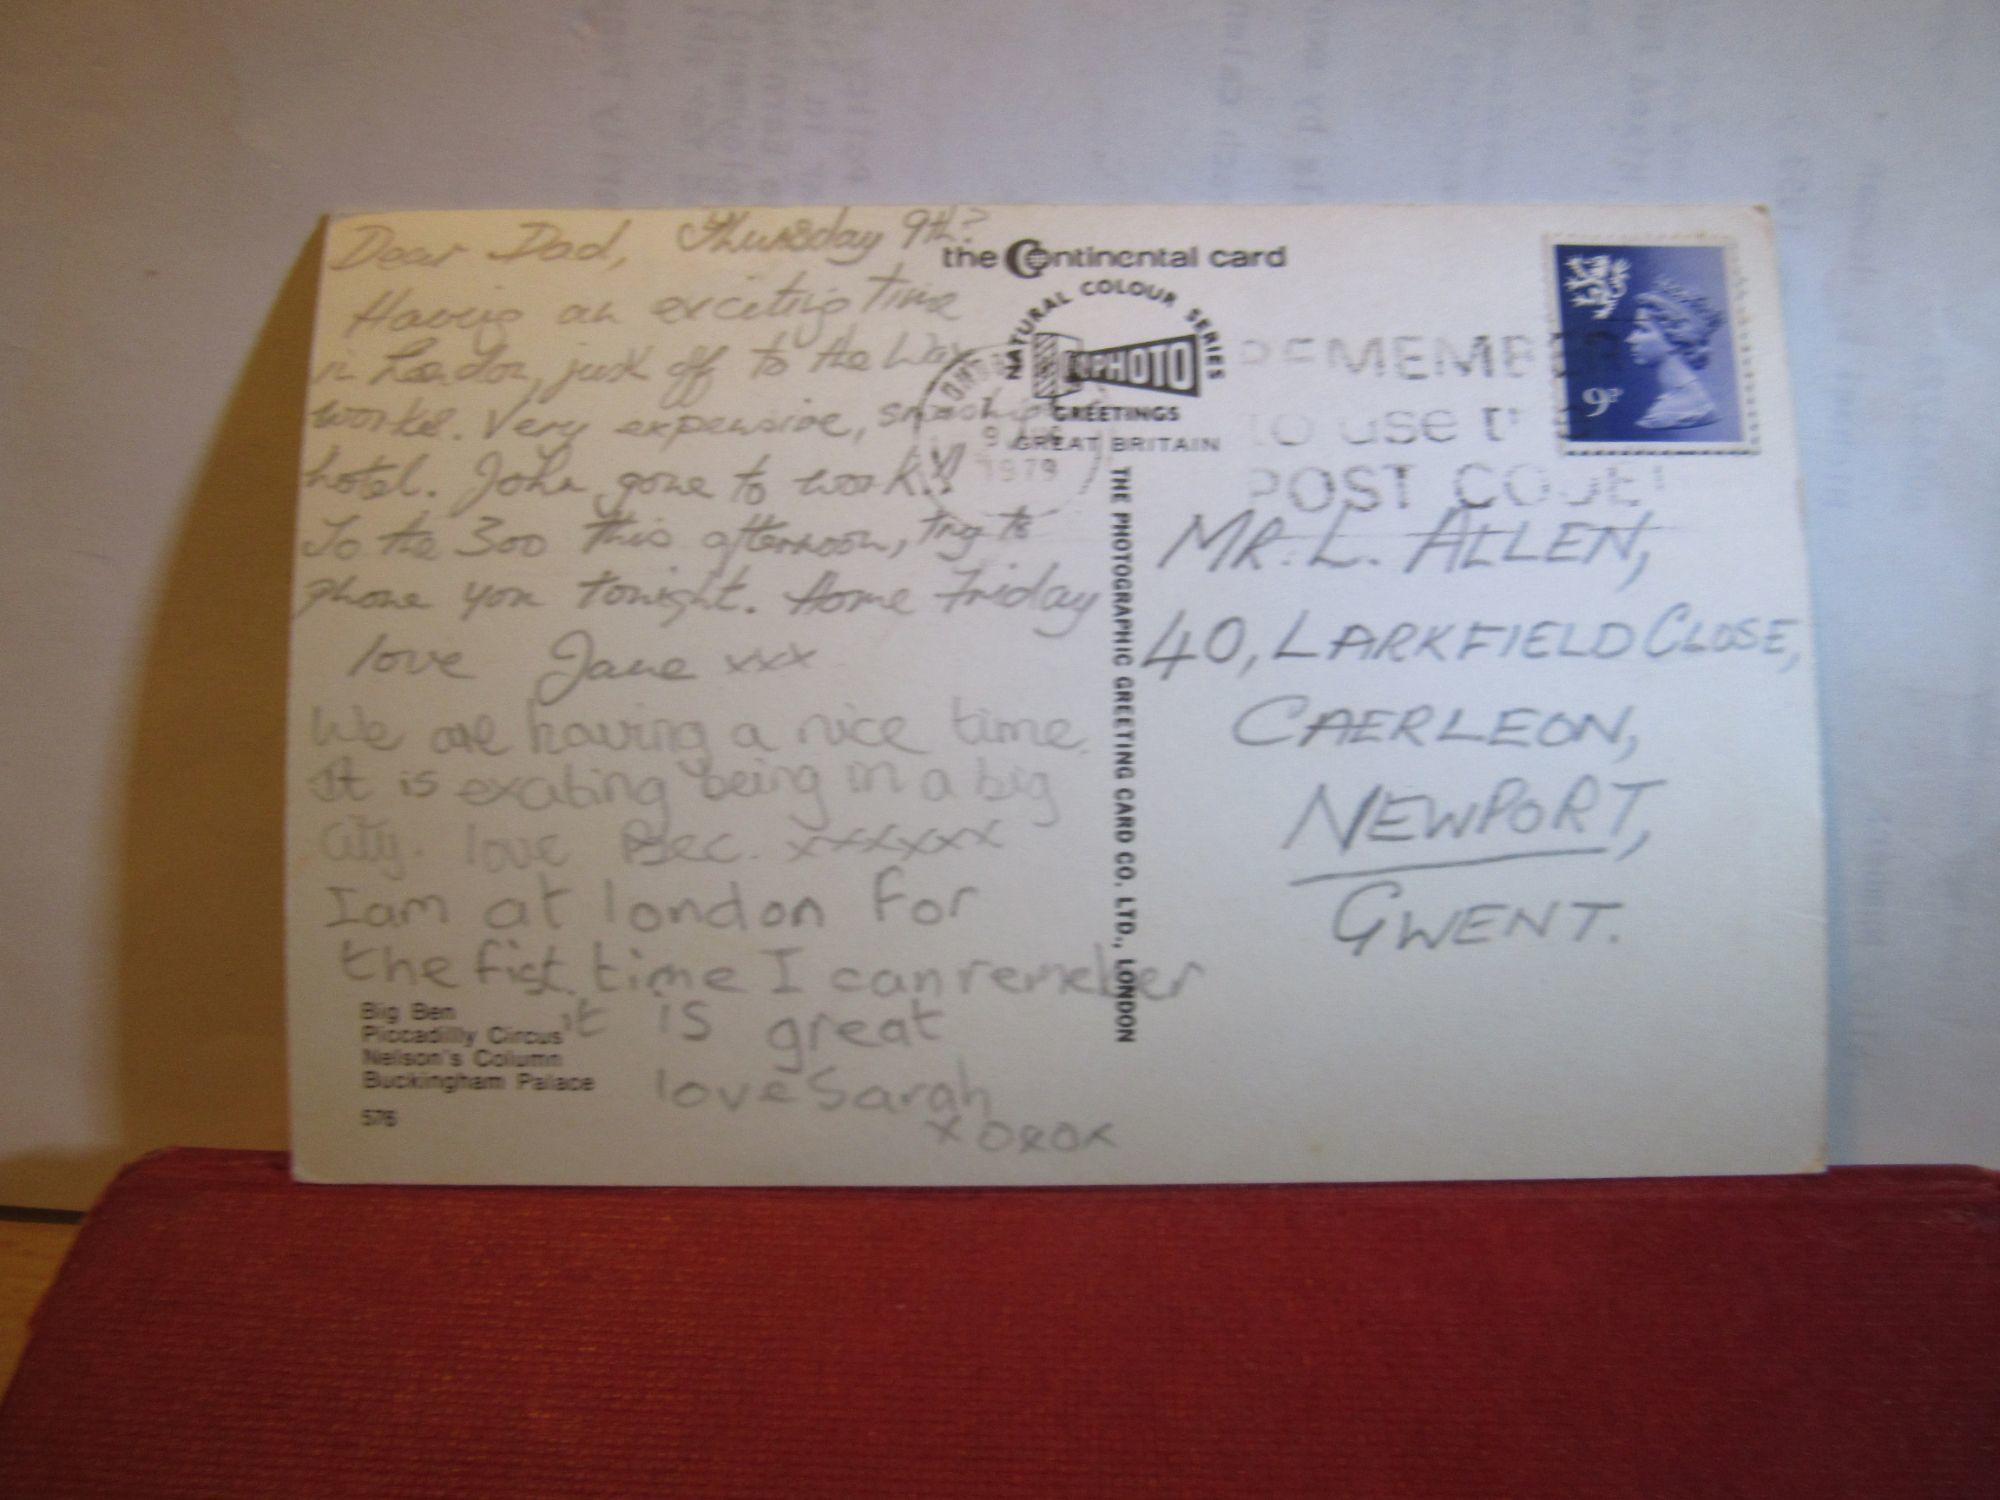 Dear Dad, Thursday 9th?
Having an exciting time
in London, just off to the Wax
works. Very expensive, smashing
hotel. John gone to work!!
To the Zoo this afternoon, try to
phone you tonight. Home Friday
love Jane xxx
We are having a nice time.
It is exciting being in a big
city. love Bec. xxxxxx
I am at london for
the fist time I can remeber
it is great
love Sarah
xoxox
Big Ben
Piccadilly Circus
Nelson's Column
Buckingham Palace
576
the Continental card
NATURAL COLOUR SERIES
PHOTO
GREETINGS
GREAT BRITAIN
THE PHOTOGRAPHIC GREETING CARD CO. LTD., LONDON
9
1979
REMEMBER
to use the
POST CODE
9P
MR. L. ALLEN,
40, LARKFIELD CLOSE,
CAERLEON,
NEWPORT,
GWENT.